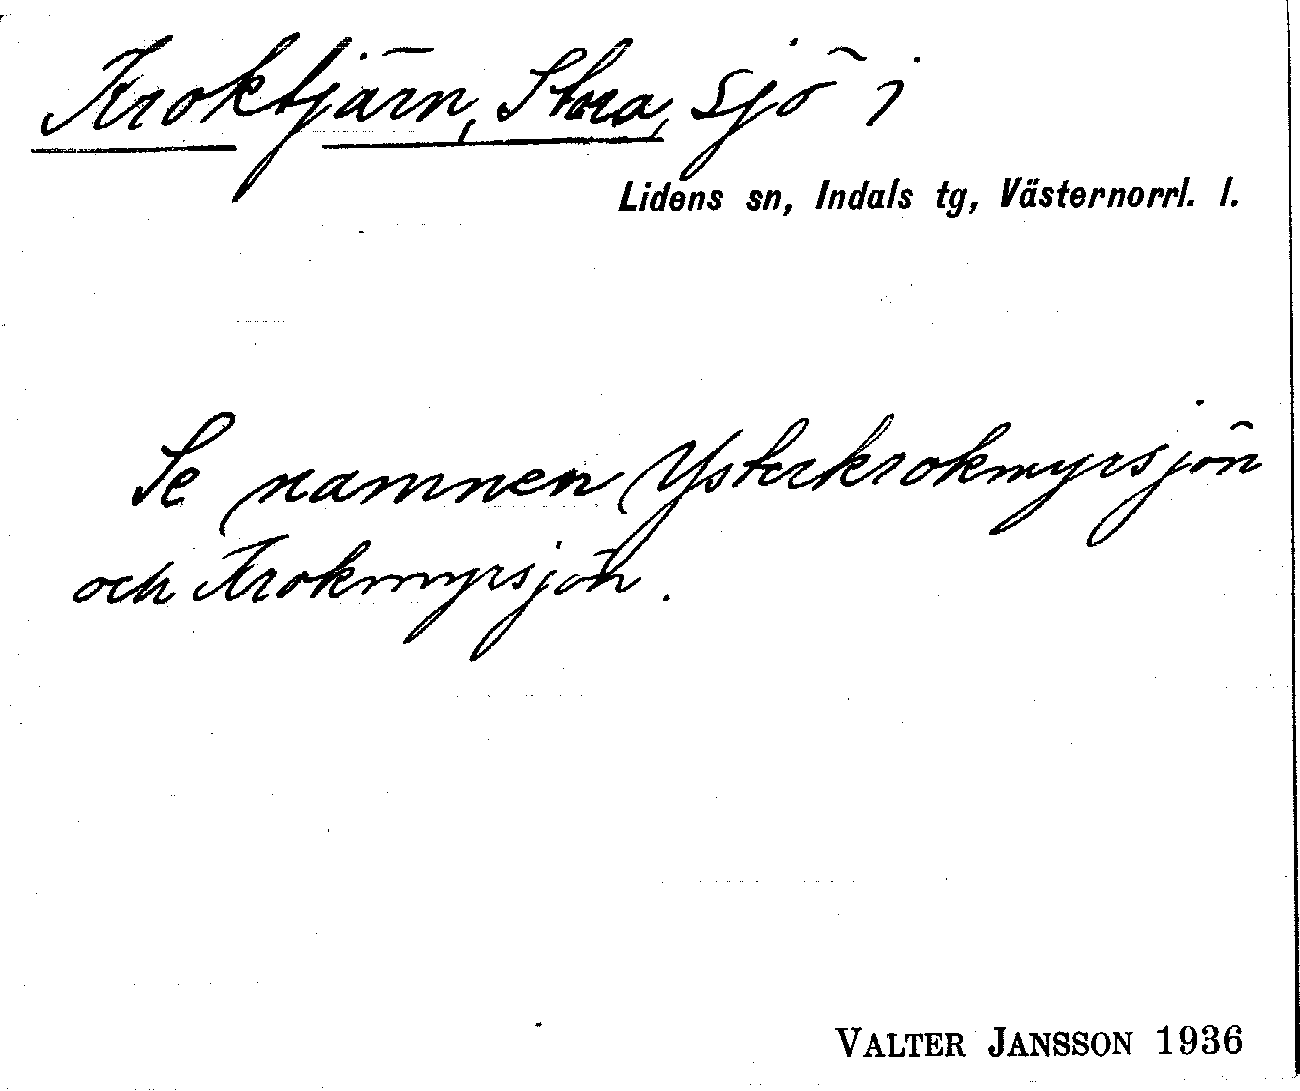 Kroktjärn, Stora, sjö i
Lidens sn, Indals tg, Västernorrl. l.
Se namnen Ysterkrokmyrsjön
och Krokmyrsjön.
VALTER JANSSON 1936